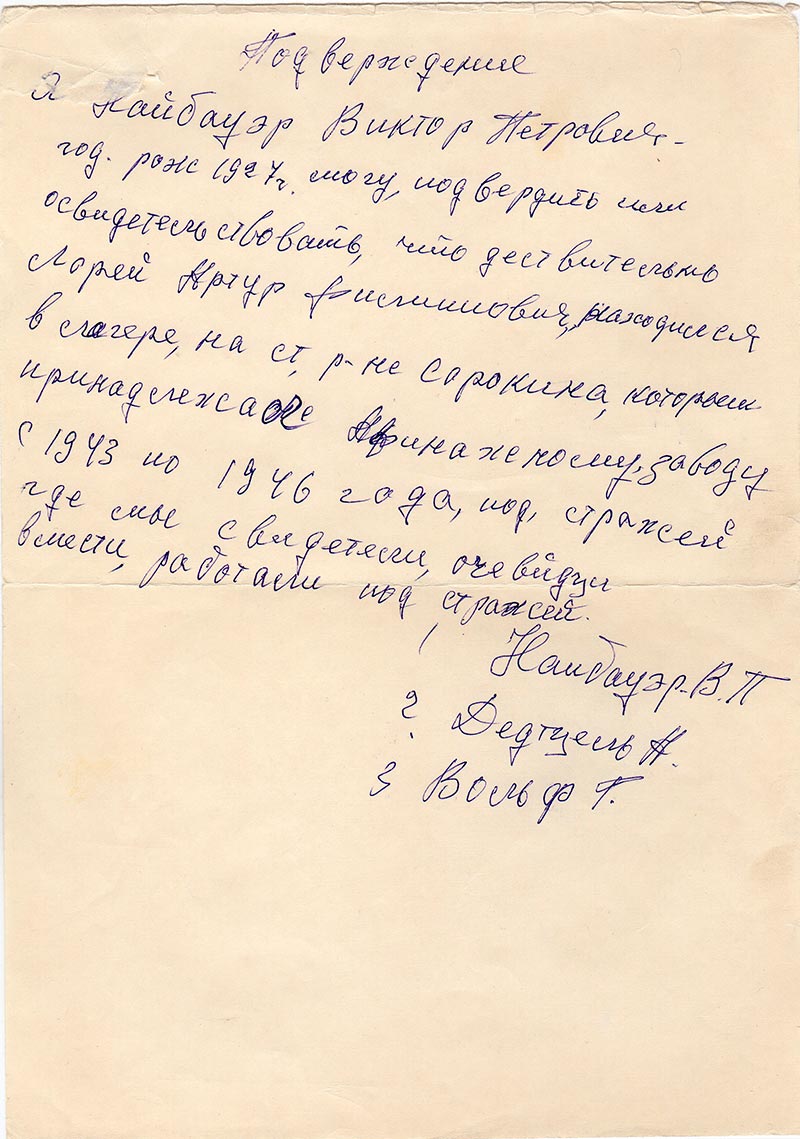 Подверждение
Я Найбауэр Виктор Петрович-
год. рож 1927г. могу, подвердить или
освидетельствовать, что дествительно
Лорей Артур находился
в лагере, на ст, р-не Сорокина, которым
принадлежа
с 1943 по 1946 года, под, стражей
где мы свидетели, очевйдцы
вмести, работали под стражей.
1 Найбауэр-В.П
2 Дедтцель
3 Вольф Г.